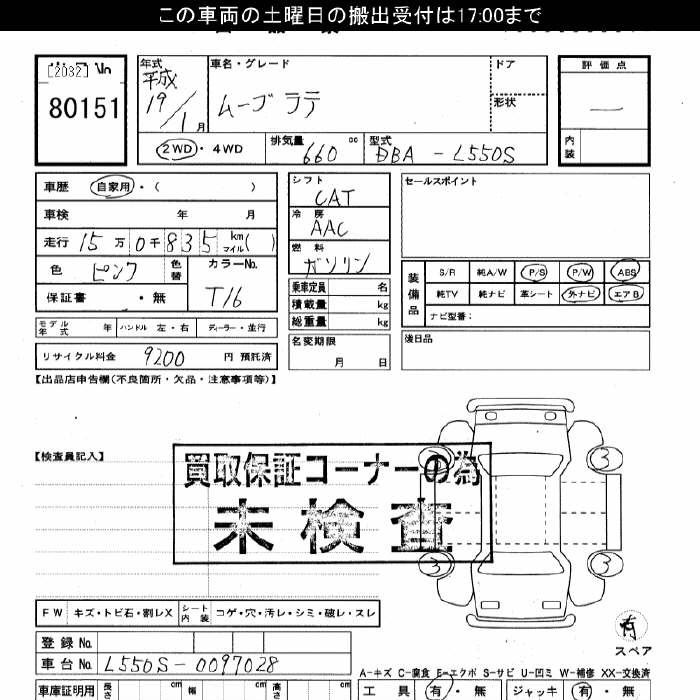 この車両の土曜日の搬出受付は17:00まで
[2032]
80151
年式
平成
19/1月
車名・グレード
ムーヴ ラテ
ドア
形状
評価点
—
内装
2WD・4WD
排気量
660 cc
型式
DBA - L550S
車歴 自家用・( )
車検 年 月
走行 15万0千835 km マイル( )
色 ピンク 色替
カラーNo.
T16
保証書 ・無
モデル年式 年 ハンドル 左・右 ディーラー・並行
リサイクル料金 9200 円 預託済
シフト
CAT
冷房
AAC
燃料
ガソリン
乗車定員 名
積載量 kg
総重量 kg
名変期限
月 日
セールスポイント
装備品
S/R 純A/W P/S P/W ABS
純TV 純ナビ 革シート 外ナビ エアB
ナビ型番:
後日品
【出品店申告欄(不良箇所・欠品・注意事項等)】
【検査員記入】
買取保証コーナーの為
未検査
3 3
3 3
有
スペア
FW キズ・トビ石・割レX シート内装 コゲ・穴・汚レ・シミ・破レ・スレ
登録No.
車台No. L550S-0097028
A-キズ C-腐食 E-エクボ S-サビ U-凹ミ W-補修 XX-交換済
車庫証明用 長さ cm 幅 cm 高さ cm
工具 有・無 ジャッキ 有・無